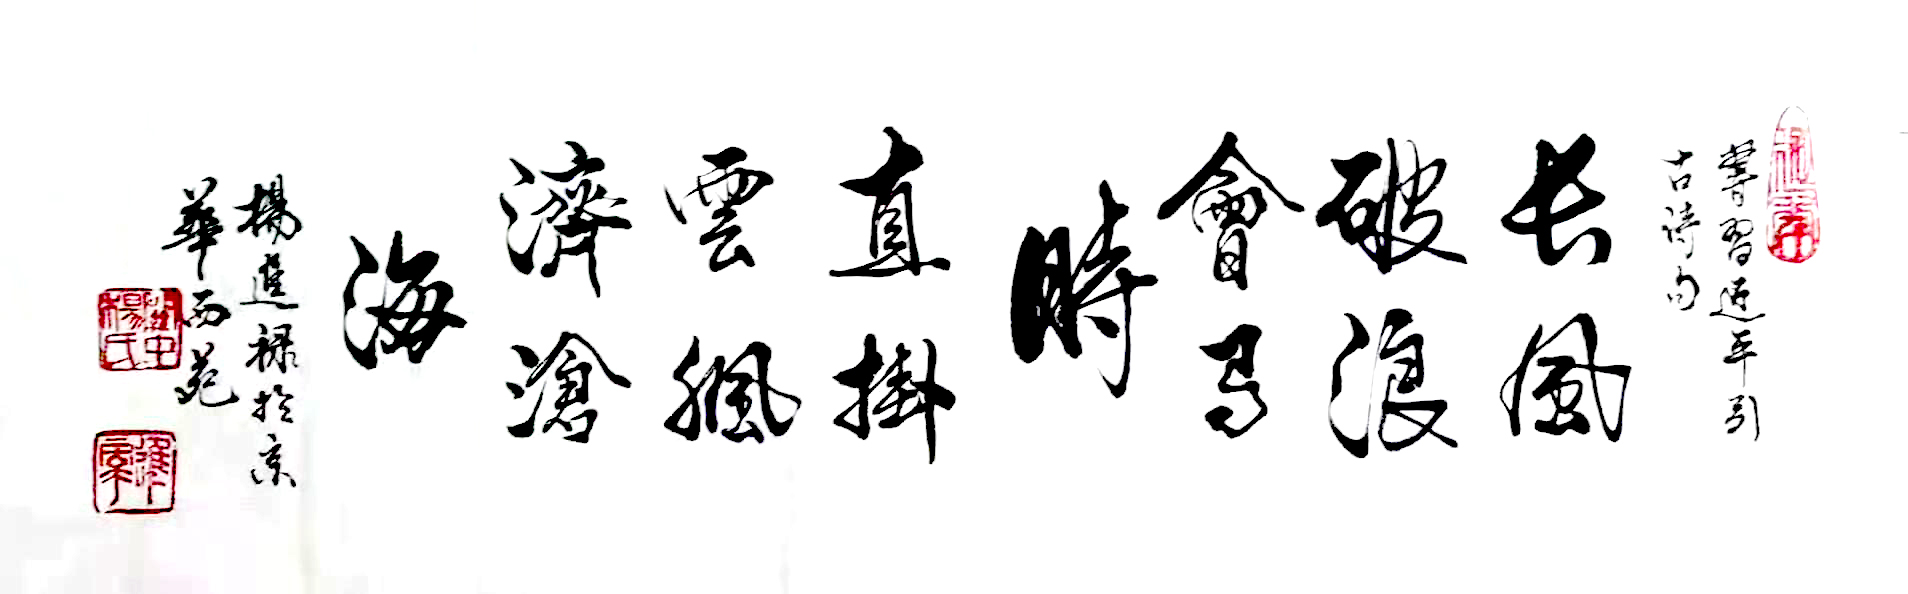 習近平引
古詩句
长風
破浪
會有
時
直掛
雲帆
濟滄
海
楊進禄於京
華西苑
楊氏